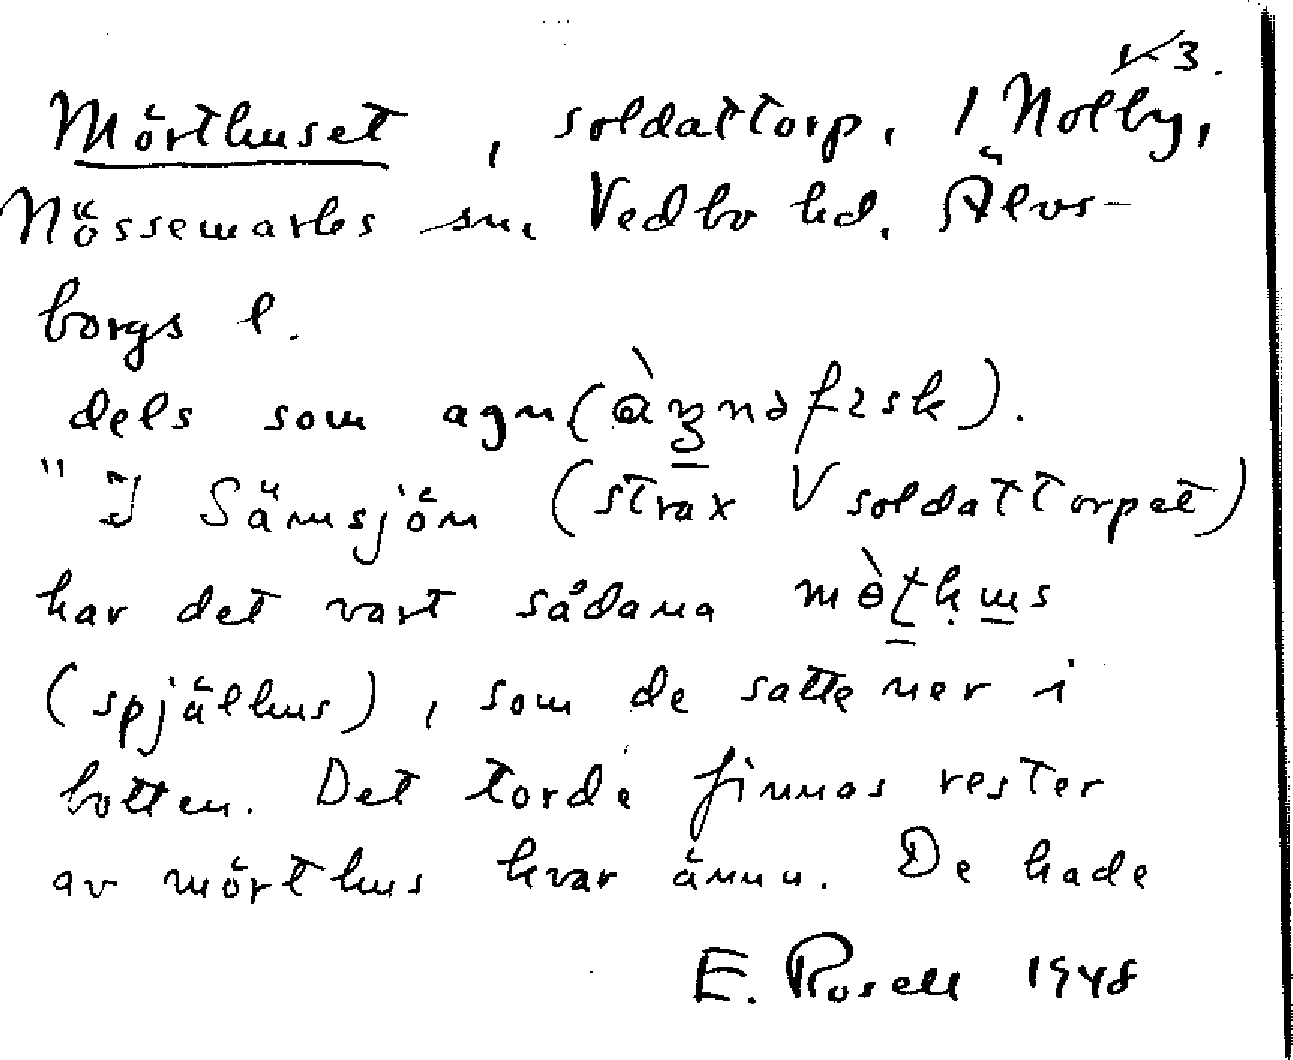 k 3.
Mörthuset, soldattorp, 1 Nolby,
Nössemarks sn, Vedbo hd. Älvs-
borgs l.
dels som agn (àgnəfɪsk).
"I Sämsjön (strax V soldattorpet)
har det vart sådana mö̀ṭhus
(spjälhus), som de satte ner i
botten. Det torde finnas rester
av mörthus kvar ännu. De hade
E. Rosell 1948